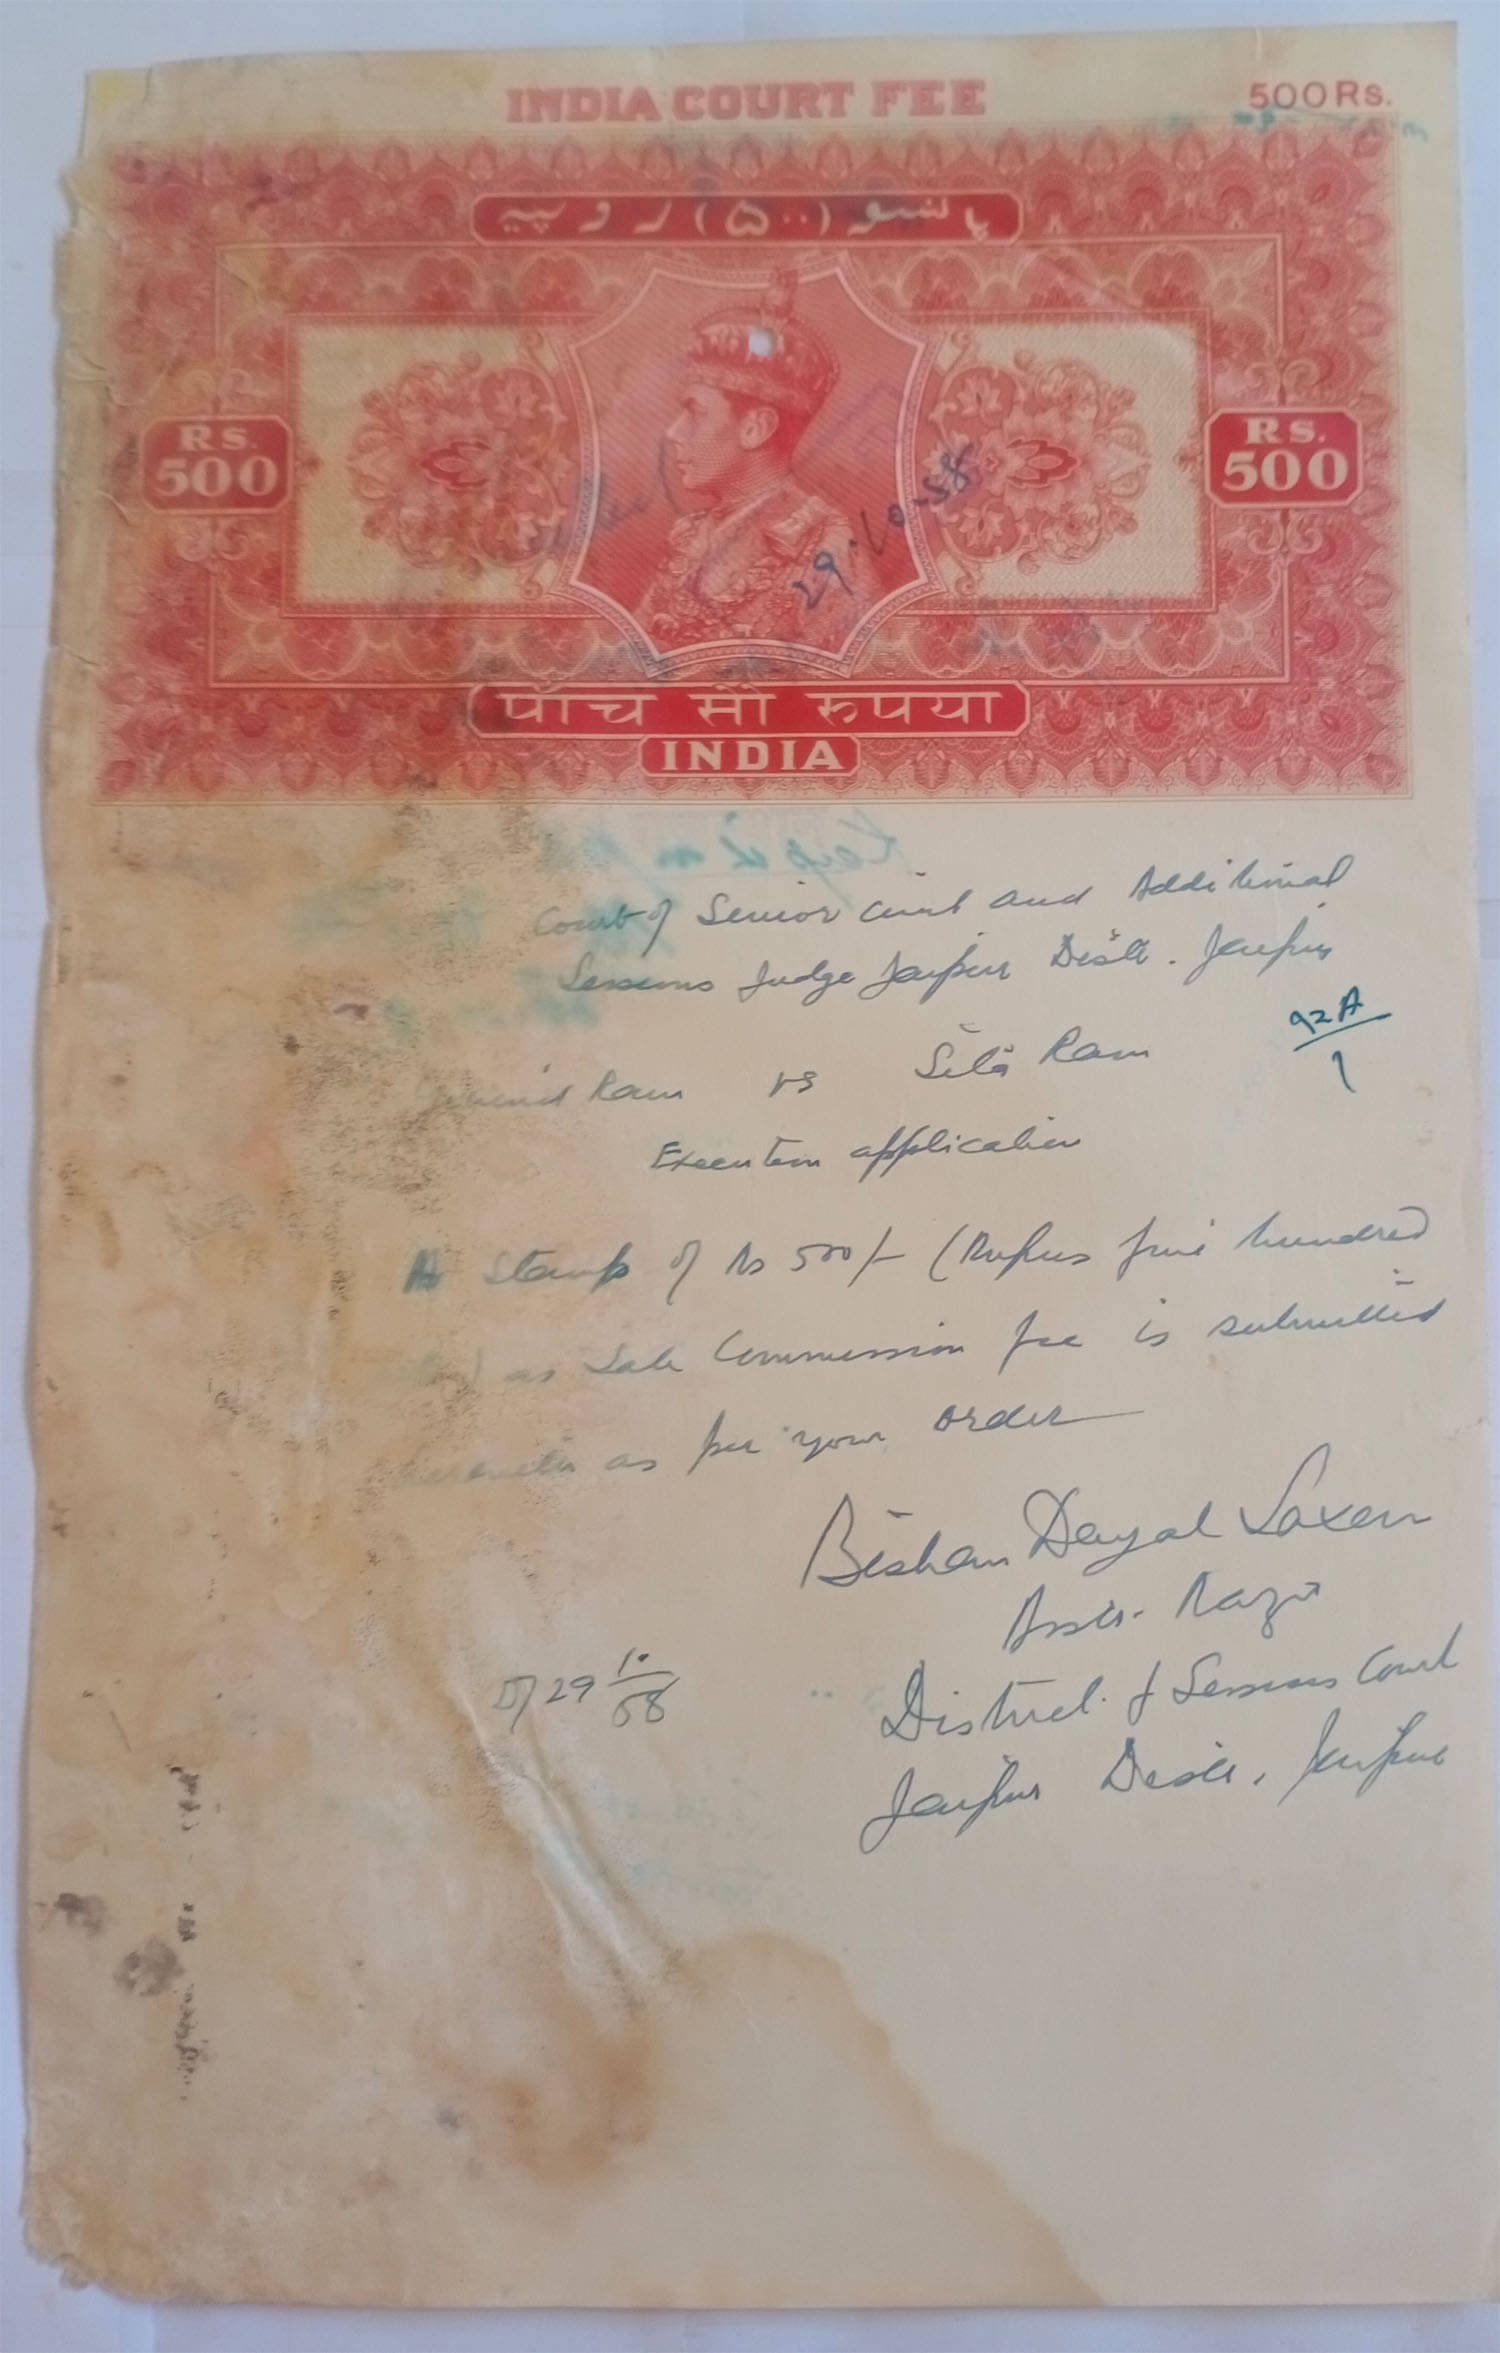 INDIA COURT FEE
500 Rs.
پانسو (۵۰۰) روپیہ
RS. 500
RS. 500
29.10.58
पाँच सौ रुपया
INDIA
Court of Senior Civil and Additional
Sessions Judge Jaipur Distt. Jaipur
92A/1
Ram vs Sita Ram
Execution application
A Stamp of Rs 500/- (Rupees five hundred
) as Sale Commission fee is submitted
herewith as per your order
Bishan Dayal Saxena
Asstt. Nazir
District & Sessions Court
Jaipur Distt. Jaipur
D/29 10/58